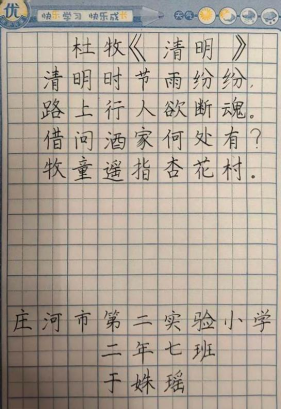 优 快乐学习 快乐成长 天气
杜牧《清明》
清明时节雨纷纷,
路上行人欲断魂。
借问酒家何处有?
牧童遥指杏花村。
庄河市第二实验小学
二年七班
于姝瑶